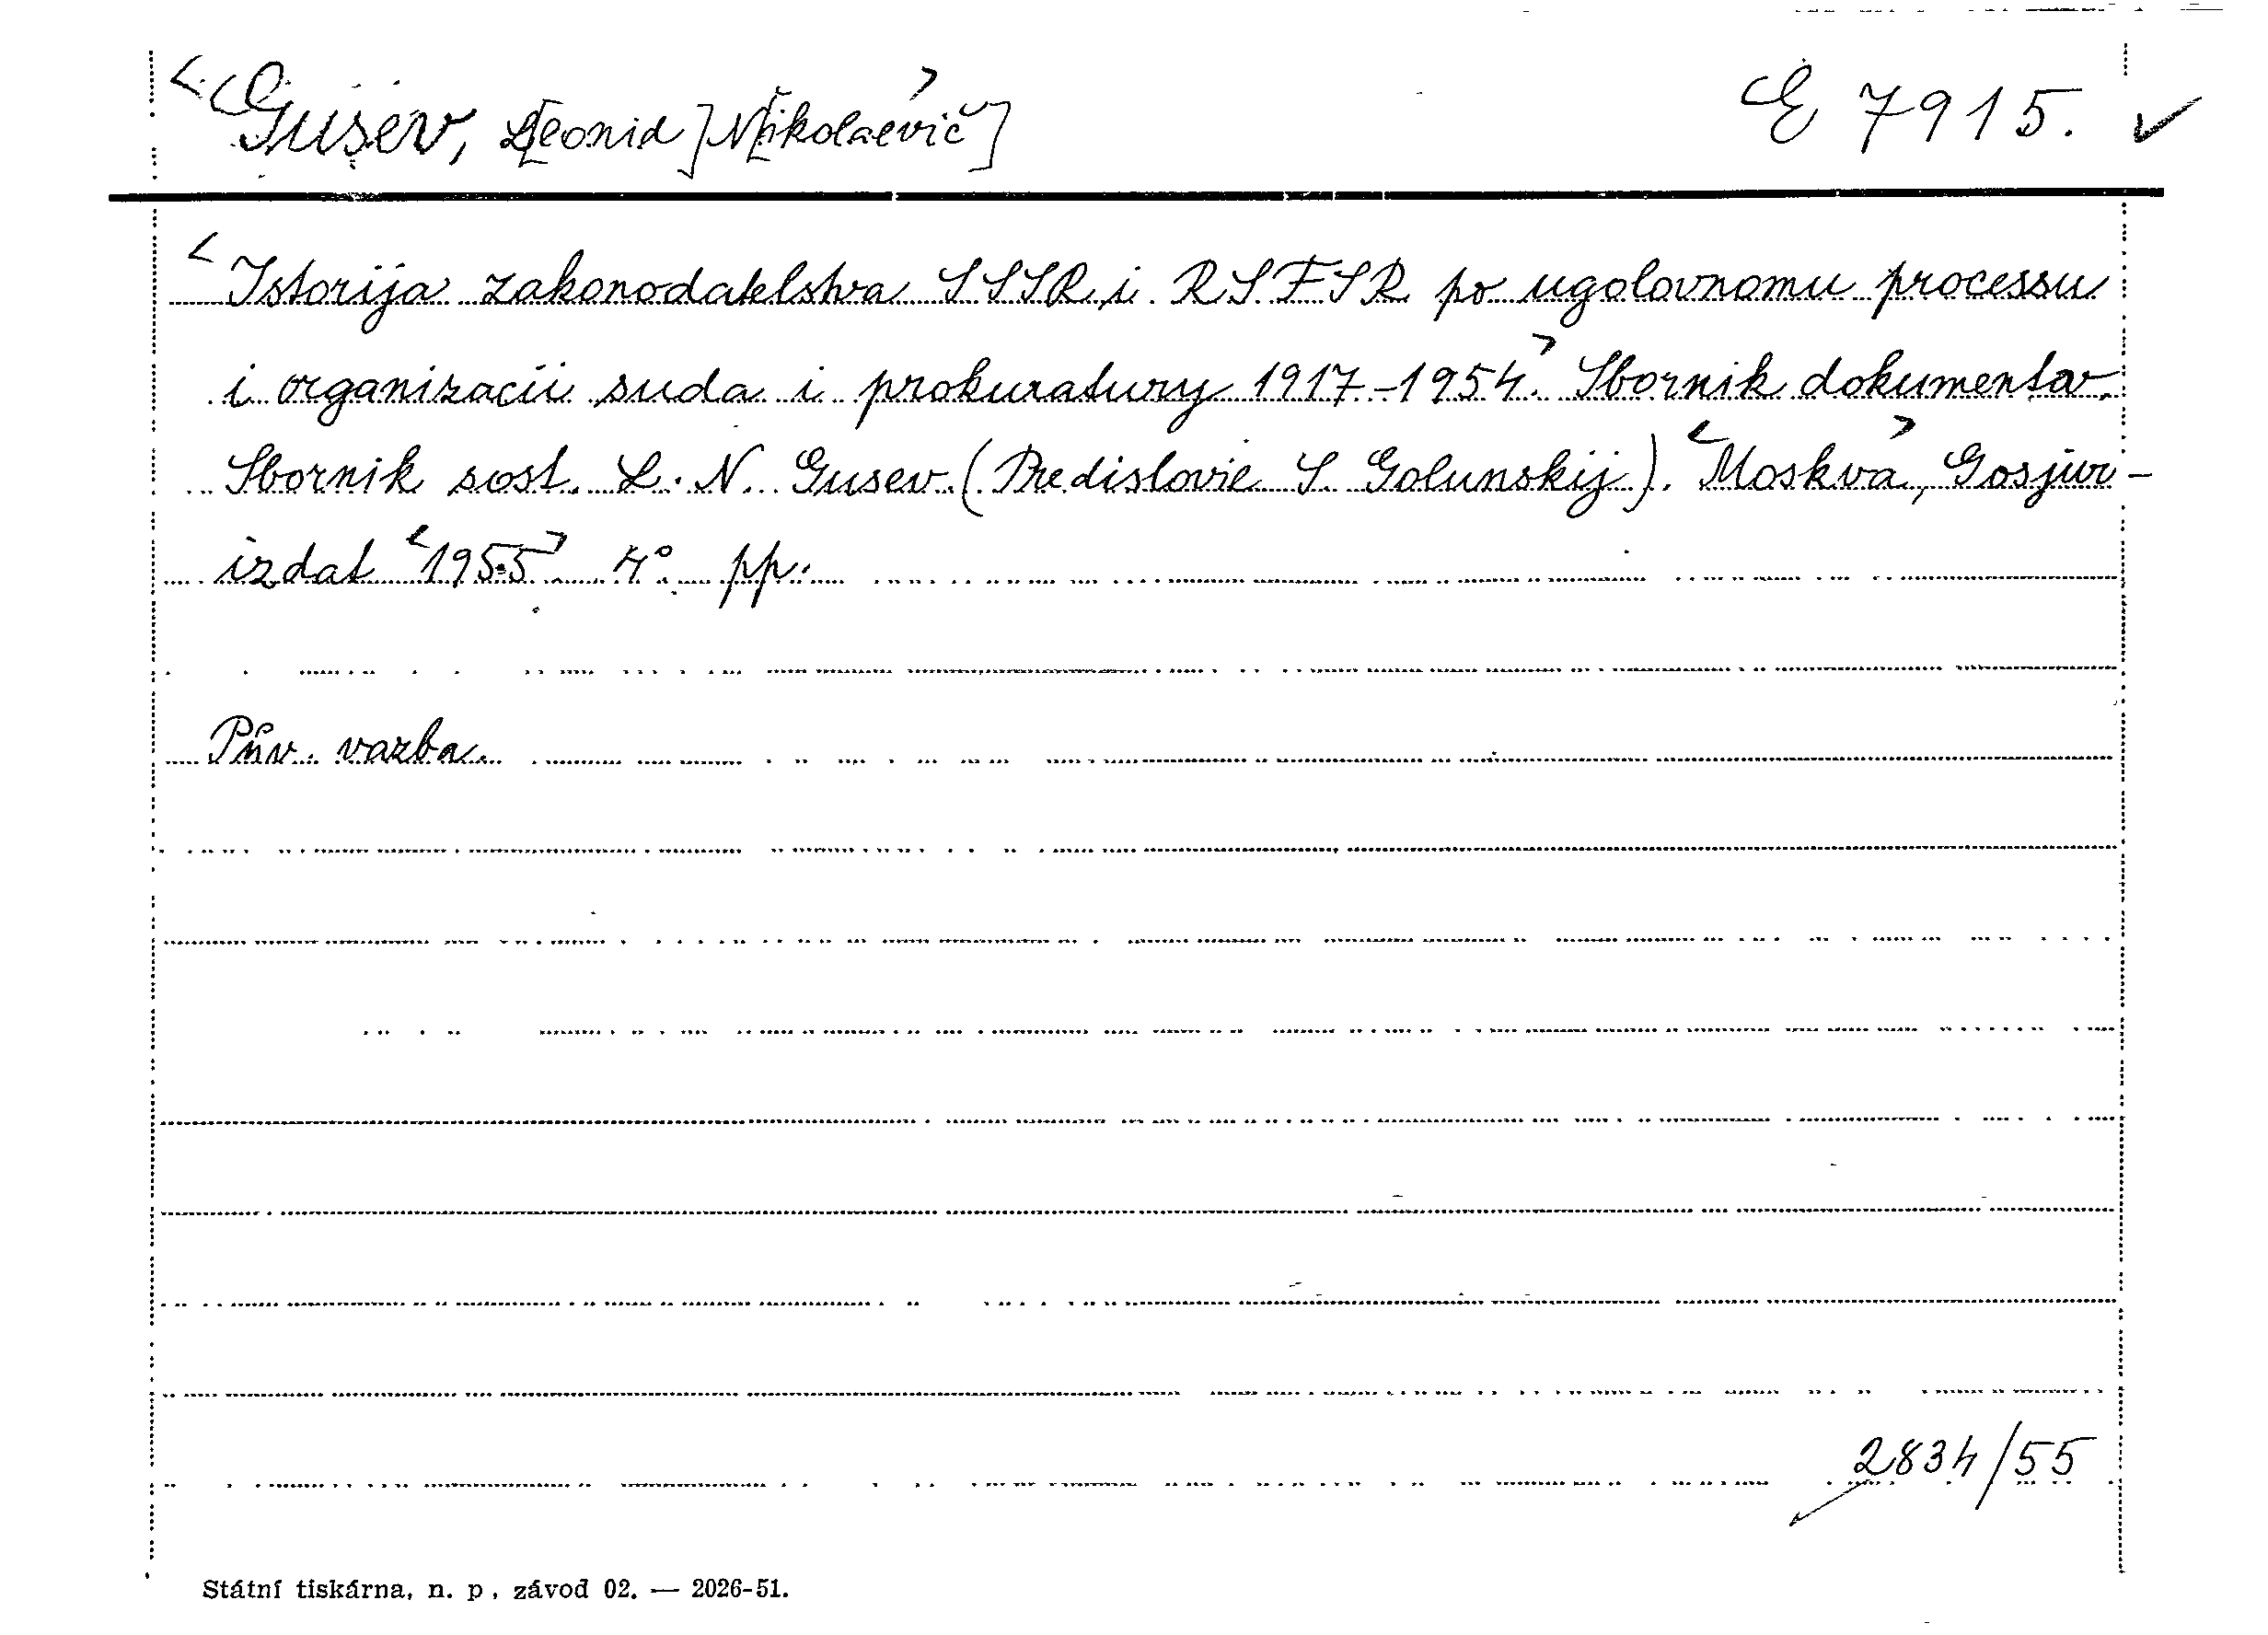 <Gusev, L[eonid] N[ikolaevič]> E 7915. ✓
<Istorija zakonodatelstva SSSR i RSFSR po ugolovnomu processu
i organizacii suda i prokuratury 1917-1954.> Sbornik dokumentov.
Sbornik sost. L. N. Gusev. (Predislovie S. Golunskij). <Moskva>, Gosjur-
izdat <1955> 4° pp.
Pův. vazba.
2834/55
Státní tiskárna, n. p., závod 02. — 2026-51.